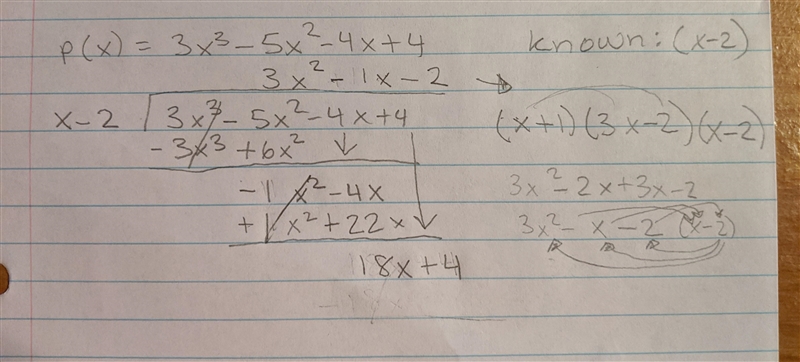 p(x) = 3x³ - 5x² - 4x + 4
known: (x-2)
3x² - 11x - 2 →
x-2 3x³ - 5x² - 4x + 4
- 3x³ + 6x² ↓
- 11x² - 4x
+ 11x² + 22x ↓
18x + 4
(x+1)(3x-2)(x-2)
3x² - 2x + 3x - 2
3x² - x - 2 (x-2)